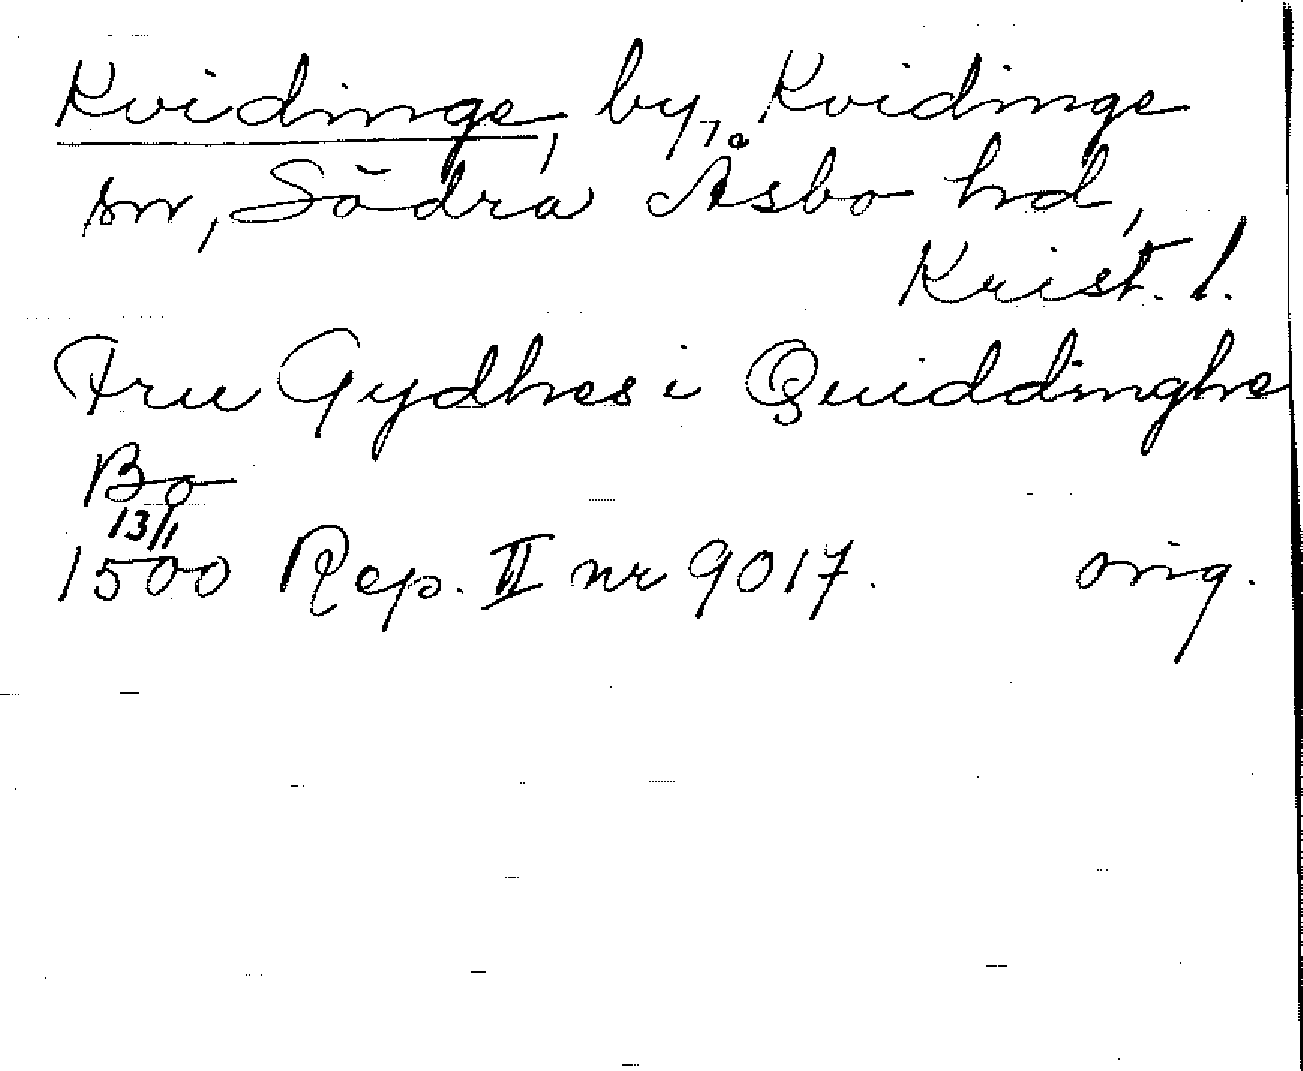 Kvidinge, by, Kvidinge
sn, Södra Åsbo hd,
Krist. l.
Fru Gydhes i Quiddinghe
Bo
13/1
1500 Rep. II nr 9017. orig.